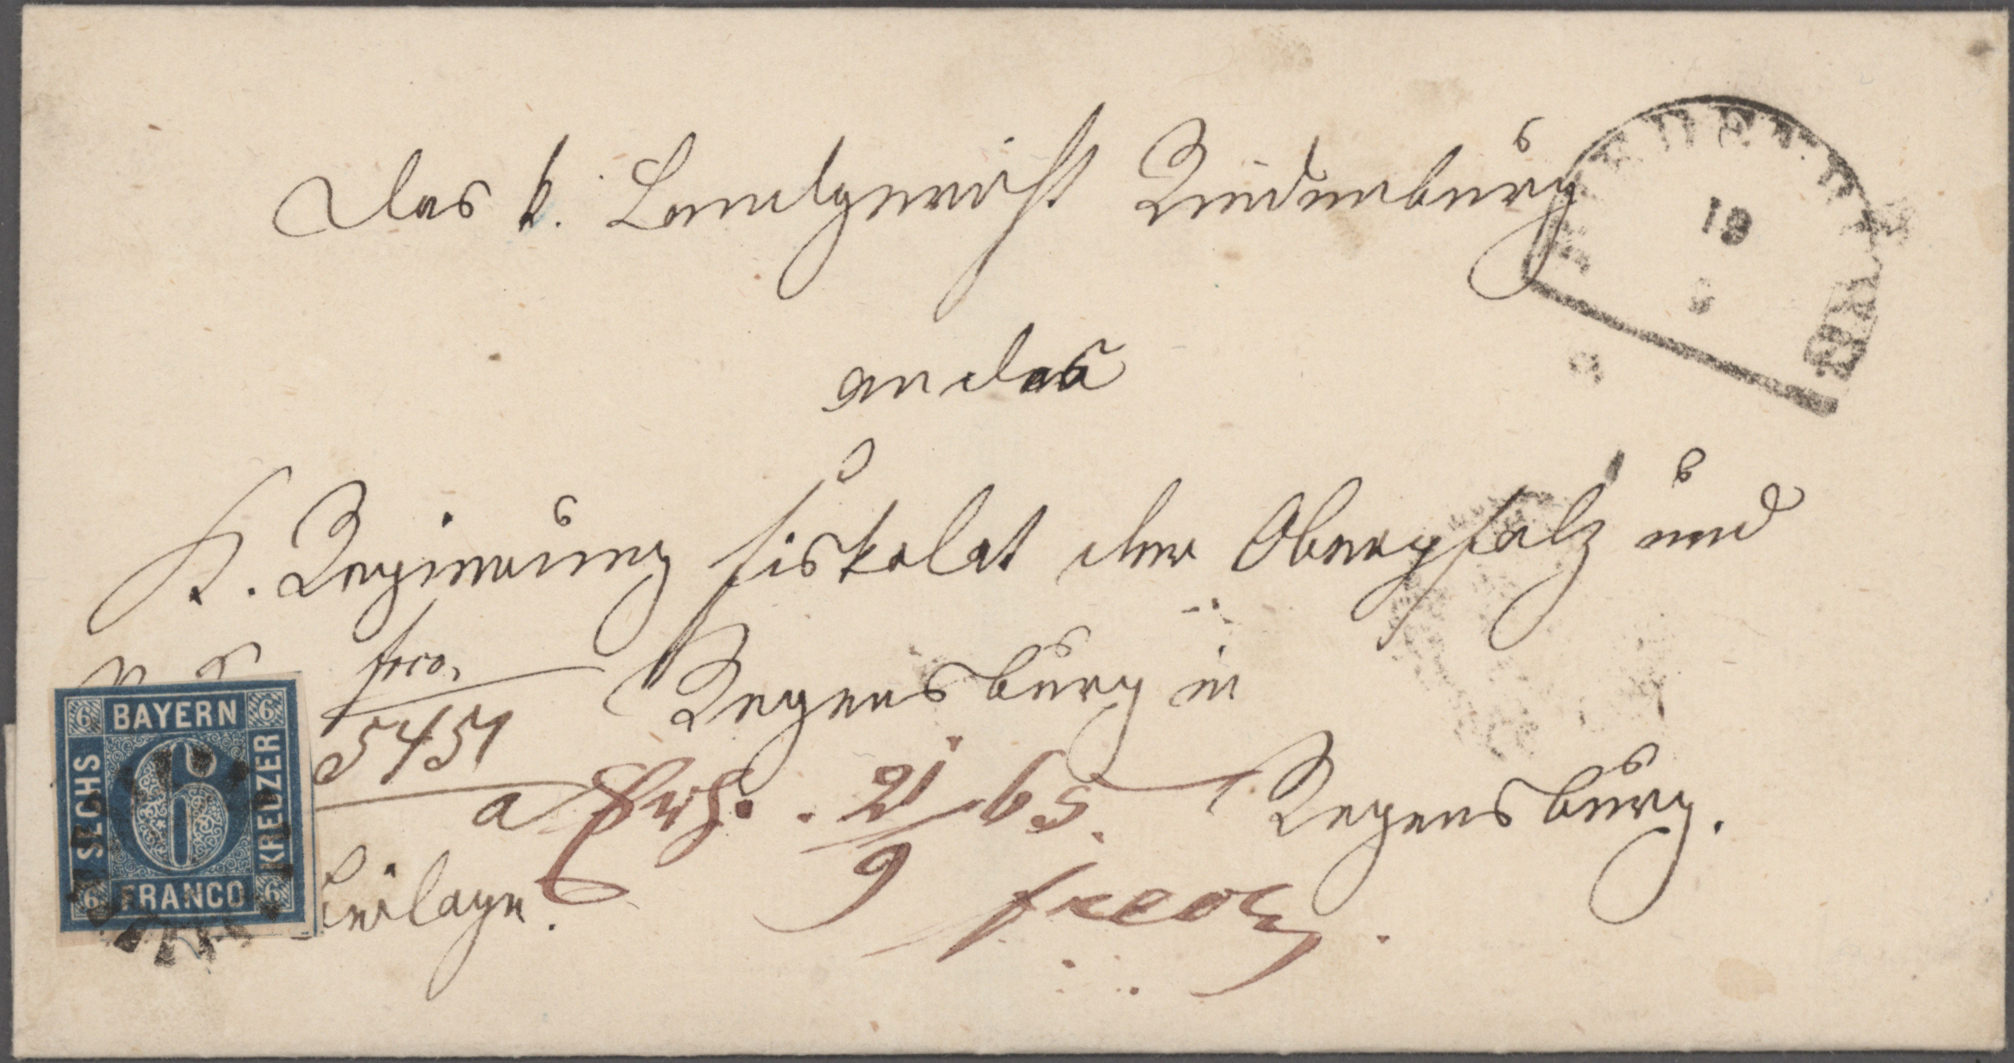 Das k. Landgericht Riedenburg
19
9
an das
K. Regierungs fiskalat der Oberpfalz und
frco.
Regensburg in
5451
a
Prs. 21/9 65.
Regensburg.
Beilage.
frco
6 BAYERN 6
SECHS
6
KREUZER
6 FRANCO 6